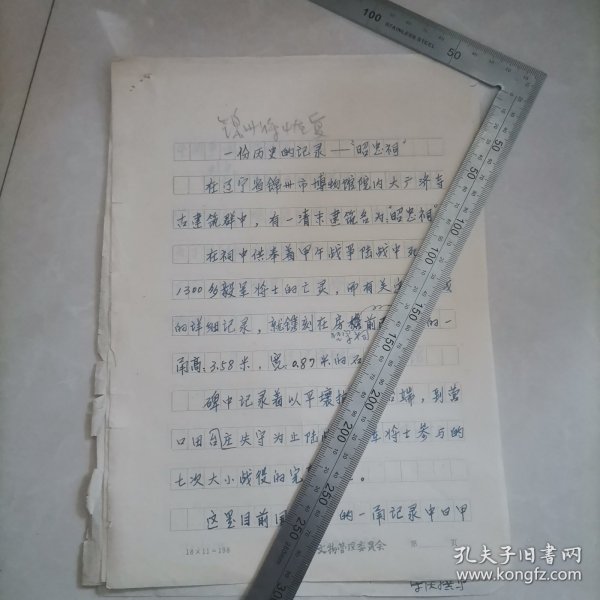 一份历史的记录——"昭忠祠"
在辽宁省锦州市博物馆院内大广济寺
古建筑群中，有一清末建筑名为"昭忠祠"
在祠中供奉着甲午战争陆战中
1300多毅军将士的亡灵，而有关
的详细记录，就镌刻在房 前 的一
甬高：3.58米，宽：0.87米的
碑中记录着以平壤 端，到营
口田台庄失守为止陆 军将士参与的
七次大小战役的完 。
这是目前 的一甬记录中日甲
18×11=198
文物管理委员会 第 页
100 STAINLESS STEEL 50
50 100 150 200 250 300
孔夫子旧书网
www.kongfz.com